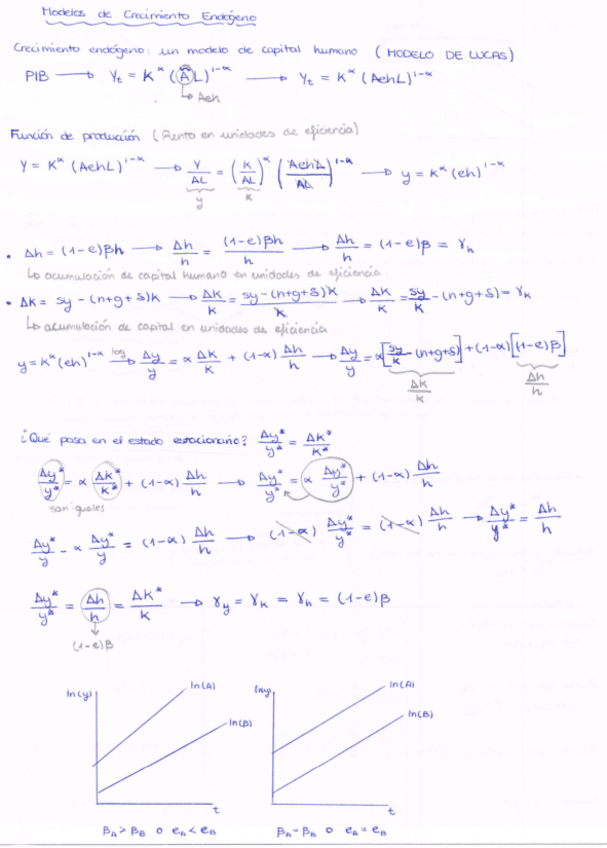 Modelos de Crecimiento Endógeno
Crecimiento endógeno: un modelo de capital humano (MODELO DE LUCAS)
PIB → Yt = K^α (ÂL)^1-α → Yt = K^α (AehL)^1-α
↳ Aeh
Función de producción (Renta en unidades de eficiencia)
Y = K^α (AehL)^1-α → Y/AL = (K/AL)^α (AehL/AL)^1-α → y = K^α (eh)^1-α
y k
• Δh = (1-e)βh → Δh/h = (1-e)βh/h → Δh/h = (1-e)β = γh
↳ acumulación de capital humano en unidades de eficiencia
• Δk = sy - (n+g+δ)k → Δk/k = sy-(n+g+δ)k/k → Δk/k = sy/k - (n+g+δ) = γk
↳ acumulación de capital en unidades de eficiencia
y = k^α (eh)^1-α log→ Δy/y = α Δk/k + (1-α) Δh/h → Δy/y = α[sy/k - (n+g+δ)] + (1-α)[(1-e)β]
Δk/k Δh/h
¿Qué pasa en el estado estacionario? Δy*/y* = Δk*/k*
Δy*/y* = α Δk*/k* + (1-α) Δh/h → Δy*/y* = α Δy*/y* + (1-α) Δh/h
son iguales
Δy*/y - α Δy*/y = (1-α) Δh/h → (1-α) Δy*/y* = (1-α) Δh/h → Δy*/y* = Δh/h
Δy*/y* = Δh/h = Δk*/k → γy = γk = γh = (1-e)β
(1-e)β
ln(y) ln(A) ln(B) t
lny ln(A) ln(B) t
βA > βB o eA < eB
βA = βB o eA = eB